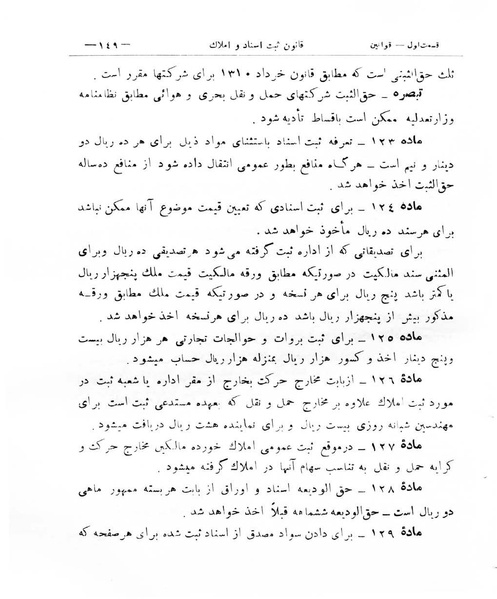 قسمت اول — قوانین
قانون ثبت اسناد و املاک
— ۱۴۹ —
ثلث حق‌الثبتی است که مطابق قانون خرداد ۱۳۱۰ برای شرکتها مقرر است .
تبصره — حق‌الثبت شرکتهای حمل و نقل بحری و هوائی مطابق نظامنامه
وزارتعدلیه ممکن است باقساط تأدیه شود .
ماده ۱۲۳ — تعرفه ثبت اسناد باستثنای مواد ذیل برای هر ده ریال دو
دینار و نیم است — هرگاه منافع بطور عمومی انتقال داده شود از منافع ده‌ساله
حق‌الثبت اخذ خواهد شد .
ماده ۱۲٤ — برای ثبت اسنادی که تعیین قیمت موضوع آنها ممکن نباشد
برای هرسند ده ریال مأخوذ خواهد شد .
برای تصدیقاتی که از اداره ثبت گرفته می‌شود هرتصدیقی ده ریال وبرای
المثنی سند مالکیت در صورتیکه مطابق ورقه مالکیت قیمت ملك پنجهزار ریال
یا کمتر باشد پنج ریال برای هر نسخه و در صورتیکه قیمت ملك مطابق ورقه
مذکور بیش از پنجهزار ریال باشد ده ریال برای هرنسخه اخذ خواهد شد .
ماده ۱۲۵ — برای ثبت بروات و حوالجات تجارتی هر هزار ریال بیست
وپنج دینار اخذ و کسور هزار ریال بمنزله هزار ریال حساب میشود .
مادهٔ ۱۲۶ — ازبابت مخارج حرکت بخارج از مقر اداره یا شعبه ثبت در
مورد ثبت املاك علاوه بر مخارج حمل و نقل که بعهده مستدعی ثبت است برای
مهندسین شبانه روزی بیست ریال و برای نماینده هشت ریال دریافت میشود .
مادهٔ ۱۲۷ — درموقع ثبت عمومی املاك خورده مالکین مخارج حرکت و
کرایه حمل و نقل به تناسب سهام آنها در املاك گرفته میشود .
مادهٔ ۱۲۸ — حق الودیعه اسناد و اوراق از بابت هر بسته ممهور ماهی
دو ریال است — حق‌الودیعه ششماهه قبلاً اخذ خواهد شد .
مادهٔ ۱۲۹ — برای دادن سواد مصدق از اسناد ثبت شده برای هرصفحه که